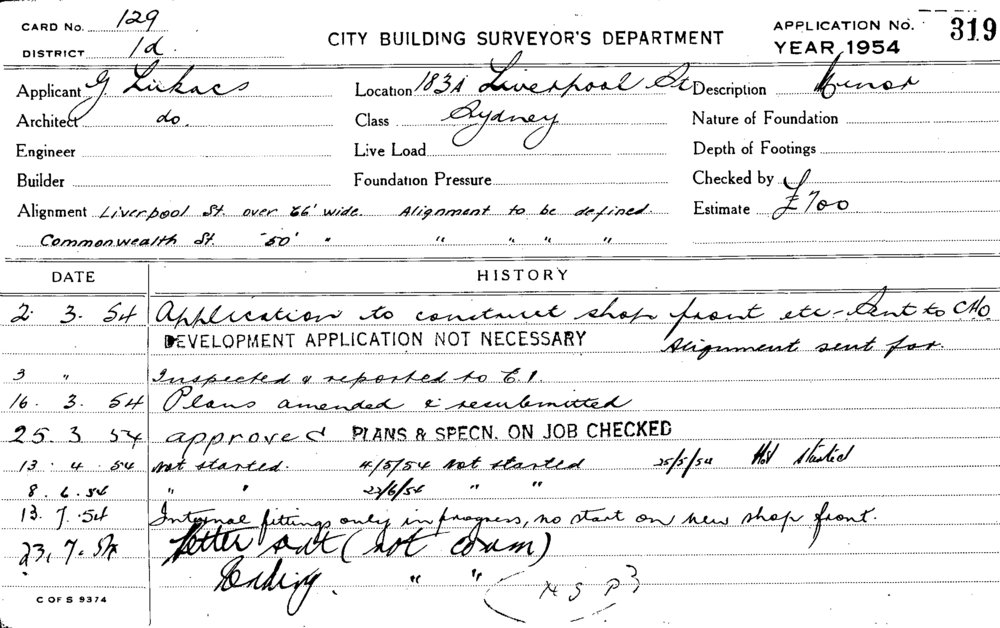 CARD NO. 129
DISTRICT 1d.
CITY BUILDING SURVEYOR'S DEPARTMENT
APPLICATION NO. 319
YEAR, 1954
Applicant G Lukacs
Location 183A Liverpool St
Description Minor
Architect do.
Class Sydney
Nature of Foundation
Engineer
Live Load
Depth of Footings
Builder
Foundation Pressure
Checked by
Alignment Liverpool St. over 66' wide. Alignment to be defined.
Estimate £700
Commonwealth St. 50' " " " " "
DATE HISTORY
2. 3. 54 Application to construct shop front etc - Sent to CHO.
DEVELOPMENT APPLICATION NOT NECESSARY Alignment sent for.
3 " Inspected & reported to C.I.
16. 3. 54 Plans amended & resubmitted
25. 3 54 approved PLANS & SPECN. ON JOB CHECKED
13. 4. 54 Not started. 4/5/54 Not started 25/5/54 Not started
8. 6. 54 " " 22/6/54 " "
13. 7. 54 Internal fittings only in progress, no start on new shop front.
23. 7. 54 Letter sent (not comm)
Ending. " "
C OF S 9374